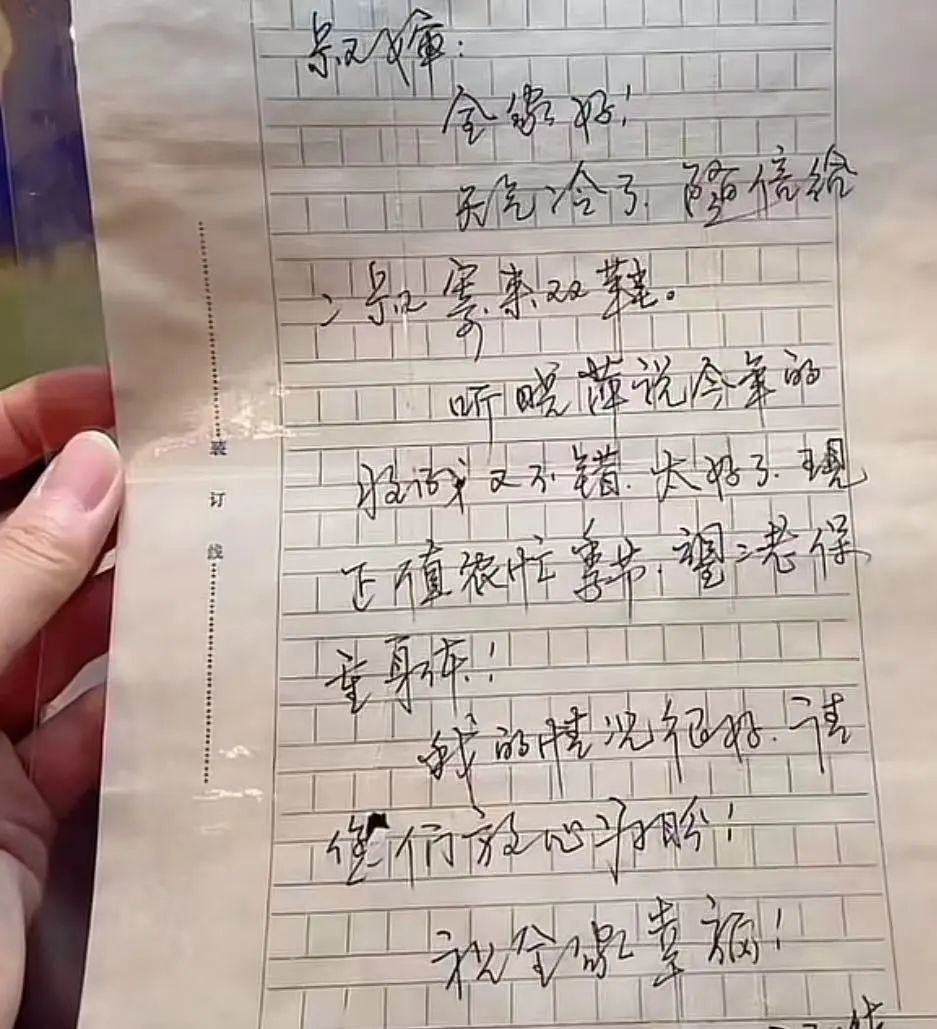 叔婶：
全家好！
天气冷了.随信给
二叔寄来双鞋。
听晓萍说今年的
收成又不错.太好了.现
正值农忙季节，望二老保
重身体！
我的情况很好.请
您们放心勿盼！
祝全家幸福！
装订线